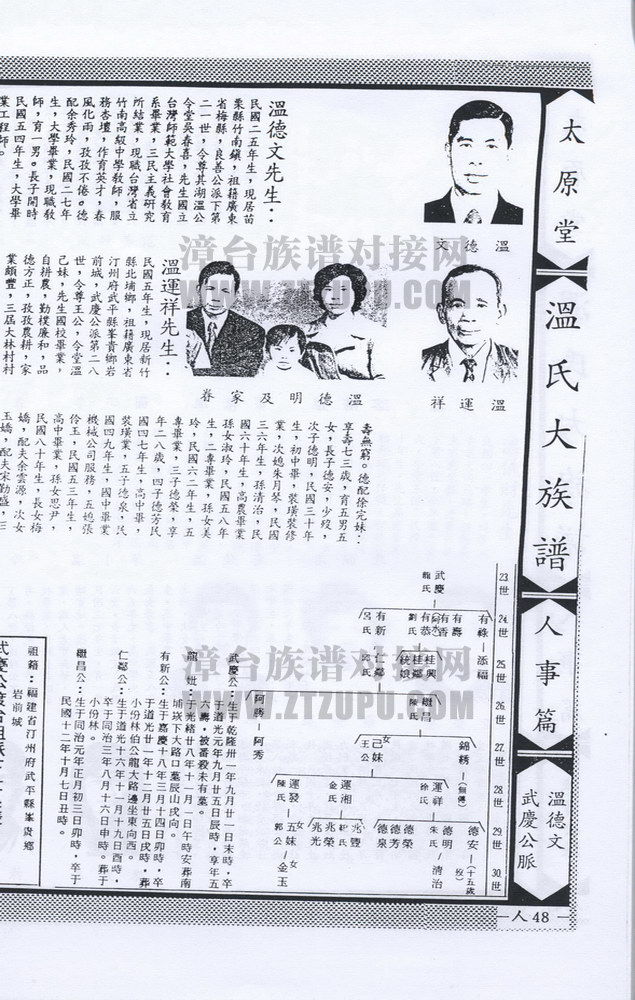 太原堂
溫氏大族譜
人事篇
溫德文
武慶公脈
人48
溫德文
溫德文先生：
民國二五年生，現居苗
栗縣竹南鎮，祖籍廣東
省梅縣，良善公派下第
二一世，令尊其湖溫公
令堂吳春喜，先生國立
台灣師範大學社會教育
系畢業，三民主義研究
所結業，現職台灣省立
竹南高級中學教師，服
務杏壇，作育英才，春
風化雨，孜孜不倦。德
配余秀玲，民國二七年
生，大學畢業，現職教
師，育一男。長子開時
民國五四年生，大學畢
業工程師。
溫運祥
溫德明及家眷
溫運祥先生：
民國五年生，現居新竹
縣北埔鄉，祖籍廣東省
汀州府武平縣峯貴鄉岩
前城，武慶公派第二八
世，令尊王公，令堂溫
己妹，先生國校畢業，
自耕農，勤樸廉和，品
德方正，孜孜農耕，家
業頗豐，三屆大林村村
壽無窮。德配徐完妹：
享壽七三歲，育五男五
女，長子德安，少歿，
次子德明，民國三十年
生，初中畢，裝璜裝修
業，次媳朱月琴，民國
三六年生，孫清治，民
國六十年生，高農畢業
孫女淑玲，民國五八年
生，二專畢業，孫女美
玲，民國六二年生，五
專畢業，三子德榮，享
年二八歲，四子德芳民
國四七年生，高中畢，
裝璜業，五子德泉，民
國四九年生，國中畢業
機械公司服務，五媳張
伶玉，民國五三年生，
高中畢業，孫女思尹，
民國八十年生，長女梅
嬌，配夫余雲源，次女
玉嬌，配夫宋勤盛，三
23世
24世
25世
26世
27世
28世
29世
30世
武慶
龍氏
有祿 添福
有壽
有香
有恭
劉氏
有新
呂氏
桂興
桂鄰
統娘
仁鄰
繼昌
陳氏
錦綉（無傳）
己妹 女
王公
阿秀
運祥
徐氏
運湘
金氏
運發
陳氏
德安（十五歲歿）
德明
朱氏
清治
德榮
德芳
德泉
兆豐
兆榮
兆光
五妹 女
郭公
金玉 女
武慶公：生于乾隆卅一年九月廿一日未時，卒
于道光元年九月廿五日辰時，享年五
六壽，被番殺未有墓。
于光緒廿八年十一月一日午時安葬南
埔崁下大路口葉辰山戌向。
有新公：生于嘉慶十八年三月十四日卯時，卒
于道光廿一年十二月廿五日戌時，葬
小份林伯公龍大路邊坐東向西。
仁鄰公：生于道光十六年十一月十九日酉時，
卒于同治三年八月十六日申時。葬于
小份林。
繼昌公：生于同治元年正月初三日卯時，卒于
民國十二年十月七日丑時。
祖籍：福建省汀州府武平縣峯貴鄉
岩前城
漳台族谱对接网
WWW.ZTZUPU.COM
漳台族谱对接网
WWW.ZTZUPU.COM